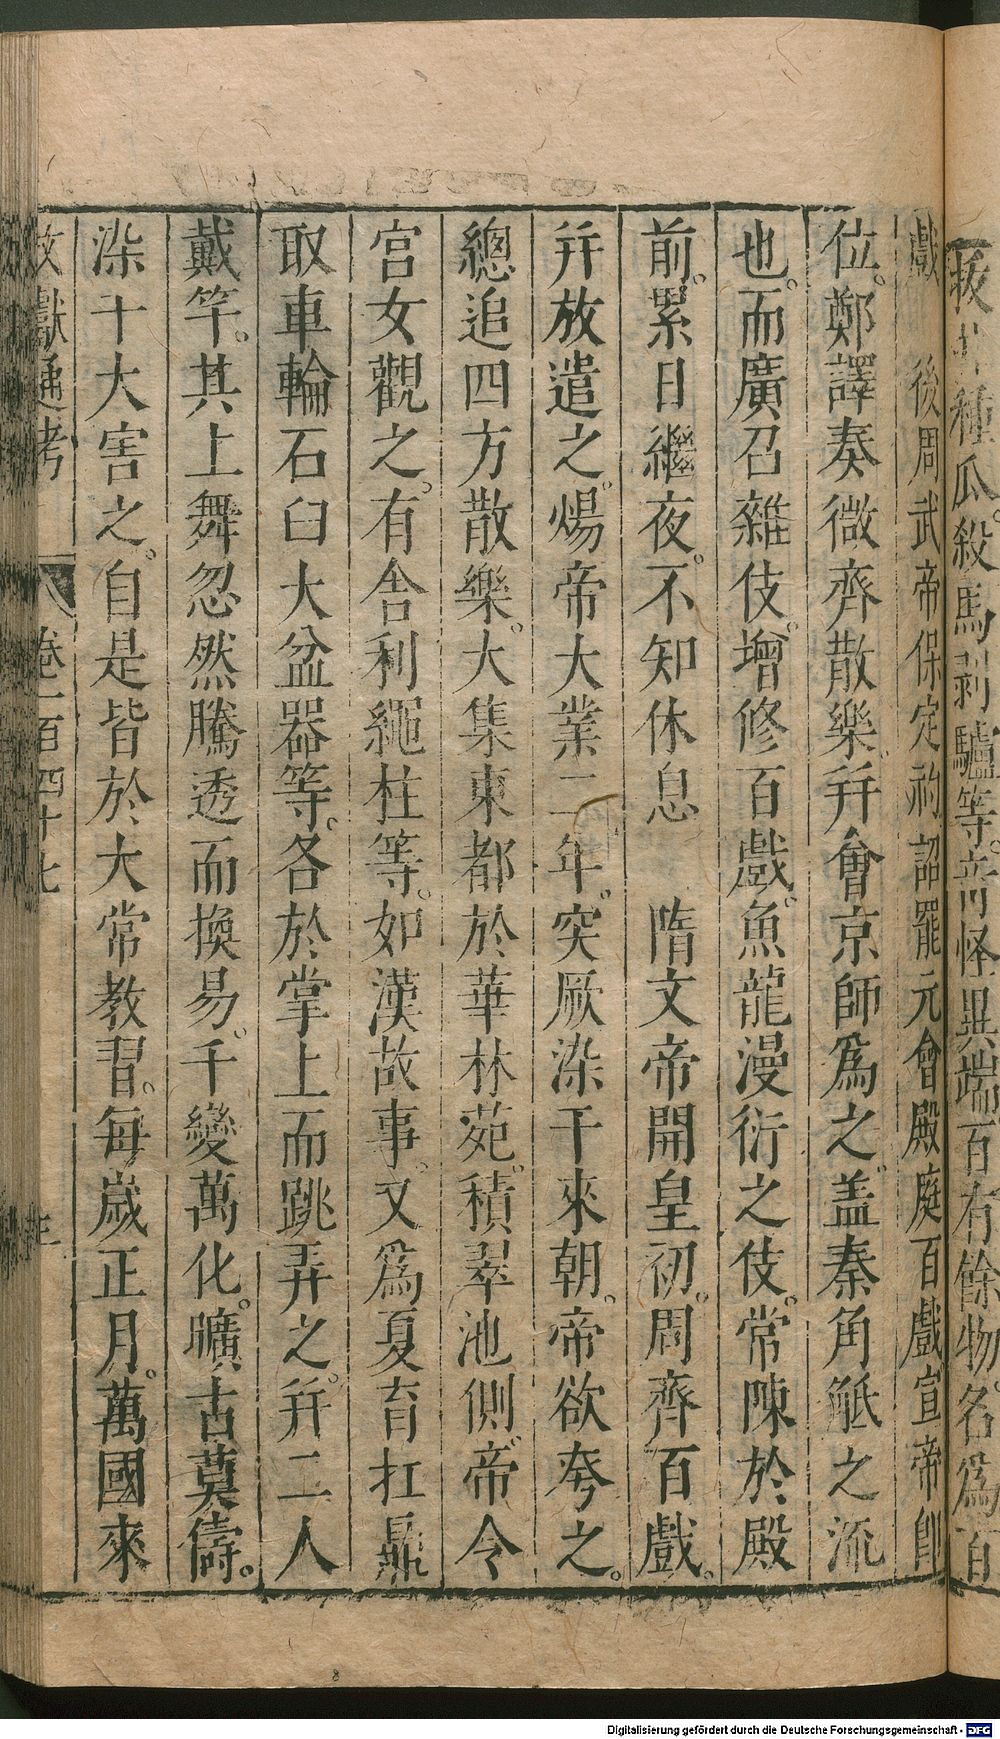 拔井種瓜。殺馬剥驢等。竒怪異端。百有餘物。名爲百
戲　後周武帝保定初詔罷元會殿庭百戲宣帝卽
位。鄭譯奏徵齊散樂。幷會京師爲之。盖秦角觝之流
也。而廣召雜伎。增修百戲。魚龍漫衍之伎。常陳於殿
前。累日繼夜。不知休息　隋文帝開皇初。周齊百戲。
幷放遣之。煬帝大業二年。突厥染干來朝。帝欲夸之。
總追四方散樂。大集東都於華林苑。積翠池側。帝令
宮女觀之。有舎利繩柱等。如漢故事。又爲夏育扛鼎
取車輪石臼大盆器等。各於掌上而跳弄之。幷二人
戴竿。其上舞忽然騰透而換易。千變萬化。曠古莫儔。
染干大害之。自是皆於大常教習。每歲正月。萬國來
文獻通考　卷一百四十七
Digitalisierung gefördert durch die Deutsche Forschungsgemeinschaft - DFG